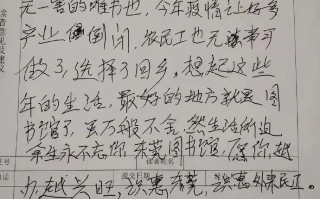 无一害的唯书也，今年疫情让好多
产业倒闭，农民工也无事可
做了，选择了回乡，想起这些
年的生活，最好的地方就是图
书馆了，万般不舍，然生活所迫
余生永不忘你，东莞图书馆，愿你越
办越兴旺，识惠东莞，识惠外来民工。
读者意见及建议
读者姓名
提交日期